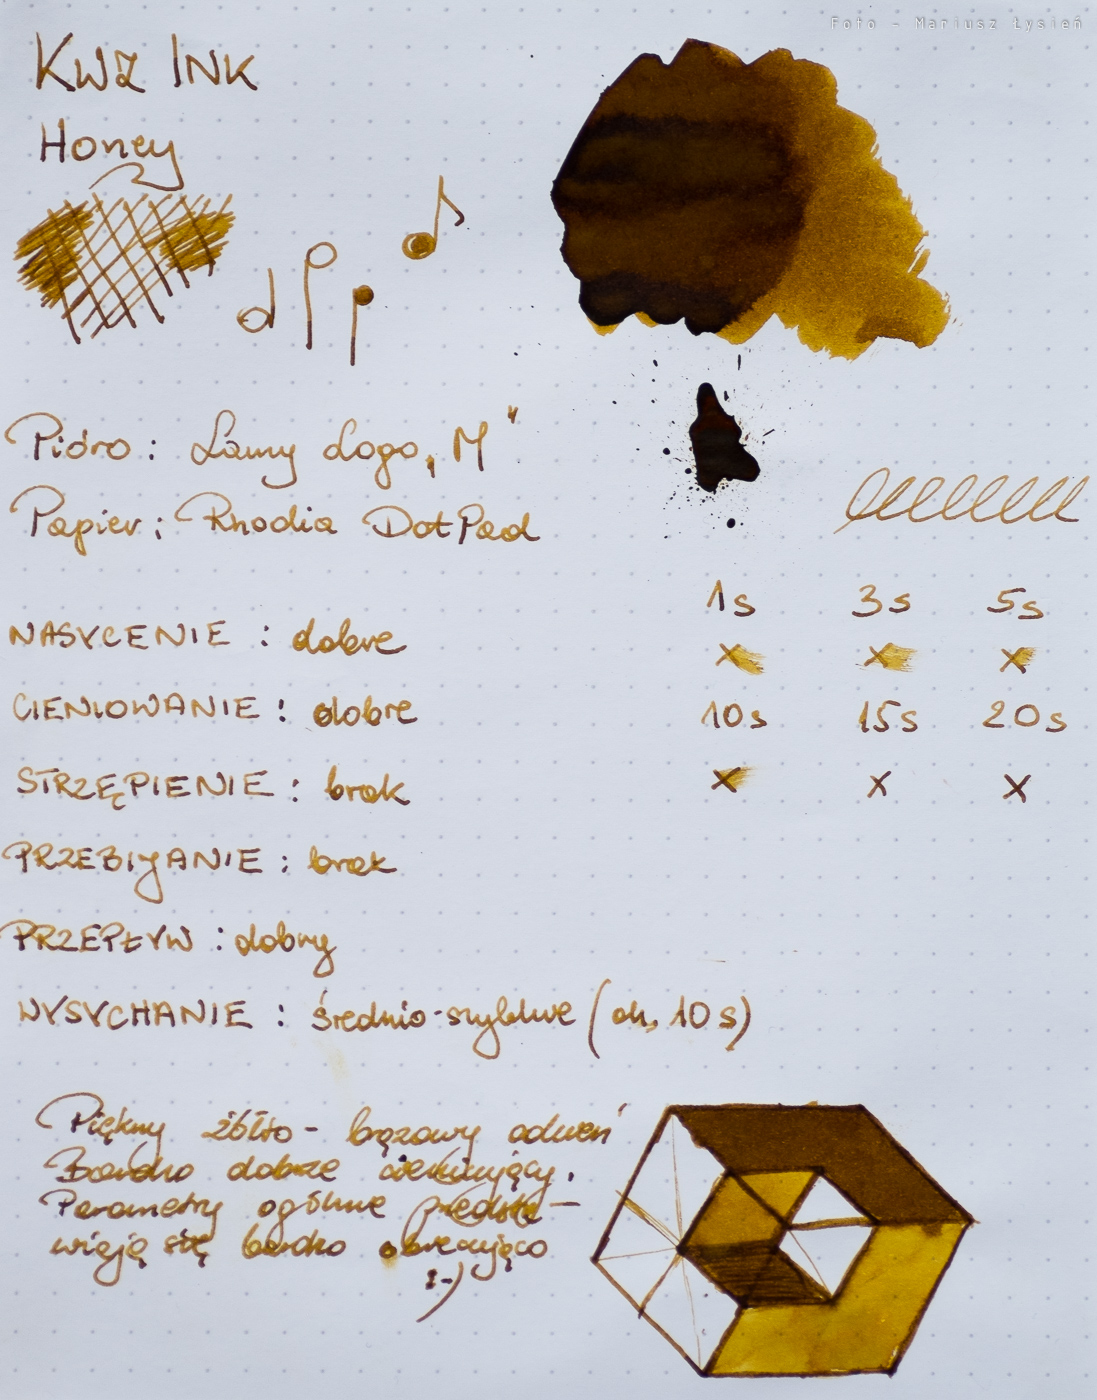 Foto - Mariusz Łysień
KWZ INK
Honey
Pióro: Lamy Logo „M"
Papier: Rhodia DotPad
1s 3s 5s
NASYCENIE : dobre
CIENIOWANIE : dobre
10s 15s 20s
STRZĘPIENIE : brak
PRZEBIJANIE : brak
PRZEPŁYW : dobry
WYSYCHANIE : średnio-szybkie (ok. 10s)
Piękny żółto-brązowy odcień
Bardzo dobrze cieniujący.
Parametry ogólne przedsta-
wiają się bardzo obiecująco
:-)